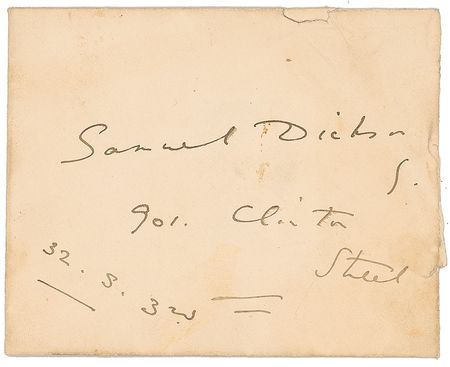 Samuel Dickson
S.
901. Clinton
Street
32. S. 32